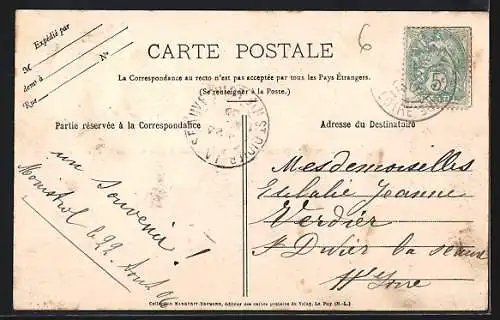 Expédié par
M
demt à
Rue
No
CARTE POSTALE
6
5c
La Correspondance au recto n'est pas acceptée par tous les Pays Étrangers.
(Se renseigner à la Poste.)
Partie réservée à la Correspondance
Adresse du Destinataire
un Souvenir !
Monistrol le 22 Août 06
Mesdemoiselles
Eulalie Jeanne
Verdier
St Didier la Seauve
Hte Loire
Collection MARGERIT-BRÉMOND, éditeur des cartes postales du Velay, Le Puy (H.-L.)